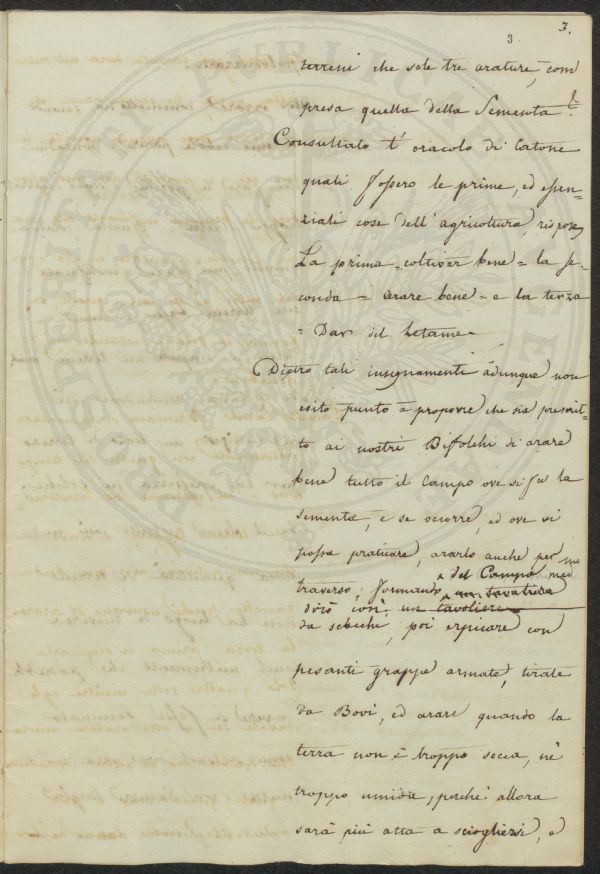 3.
3
terreni che sole tre arature, com
presa quella della Sementa.
Consultato l'oracolo di Catone
quali fossero le prime, ed essen=
ziali cose dell'agricoltura, rispose,
La prima = coltivar bene = la se=
conda = arare bene = e la terza
= Dar del Letame =
Dietro tali insegnamenti adunque non
esito punto a proporre che sia prescrit=
to ai nostri Biffolchi di arare
bene tutto il Campo ove si fa la
sementa, e se ocorre, ed ove si
possa praticare, ararlo anche per
traverso, formando del Campo
un tavoliere
da scacchi, poi erpicare con
pesanti grappe armate, tirate
da Bovi, ed arare quando la
terra non è troppo secca, nè
troppo umida, perchè allora
sarà più atta a sciogliersi, e
PROSPERITATI PUBLICAE